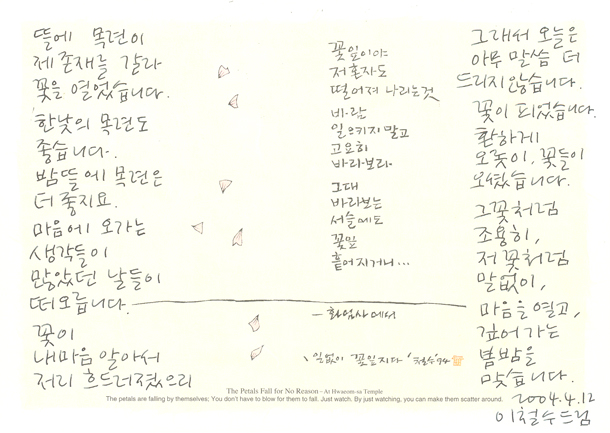 뜰에 목련이
제 존재를 갈라
꽃을 열었습니다.
한낮의 목련도
좋습니다.
밤뜰에 목련은
더 좋지요.
마음에 오가는
생각들이
많았던 날들이
떠오릅니다.
꽃이
내마음 알아서
저리 흐드러졌으리
꽃잎이야
저 혼자도
떨어져 나리는것
바람
일으키지 말고
고요히
바라보라
그대
바라보는
서슬에도
꽃잎
흩어지거니...
- 화엄사에서
일없이 꽃잎지다 '철수' 94
The Petals Fall for No Reason – At Hwaeom-sa Temple
The petals are falling by themselves; You don't have to blow for them to fall. Just watch. By just watching, you can make them scatter around.
그래서 오늘은
아무 말씀 더
드리지 않습니다.
꽃이 피었습니다.
환하게
오롯이, 꽃들이
오셨습니다.
그꽃처럼
조용히,
저 꽃처럼
말없이,
마음을 열고,
깊어 가는
봄밤을
맞습니다.
2004.4.12
이철수드림